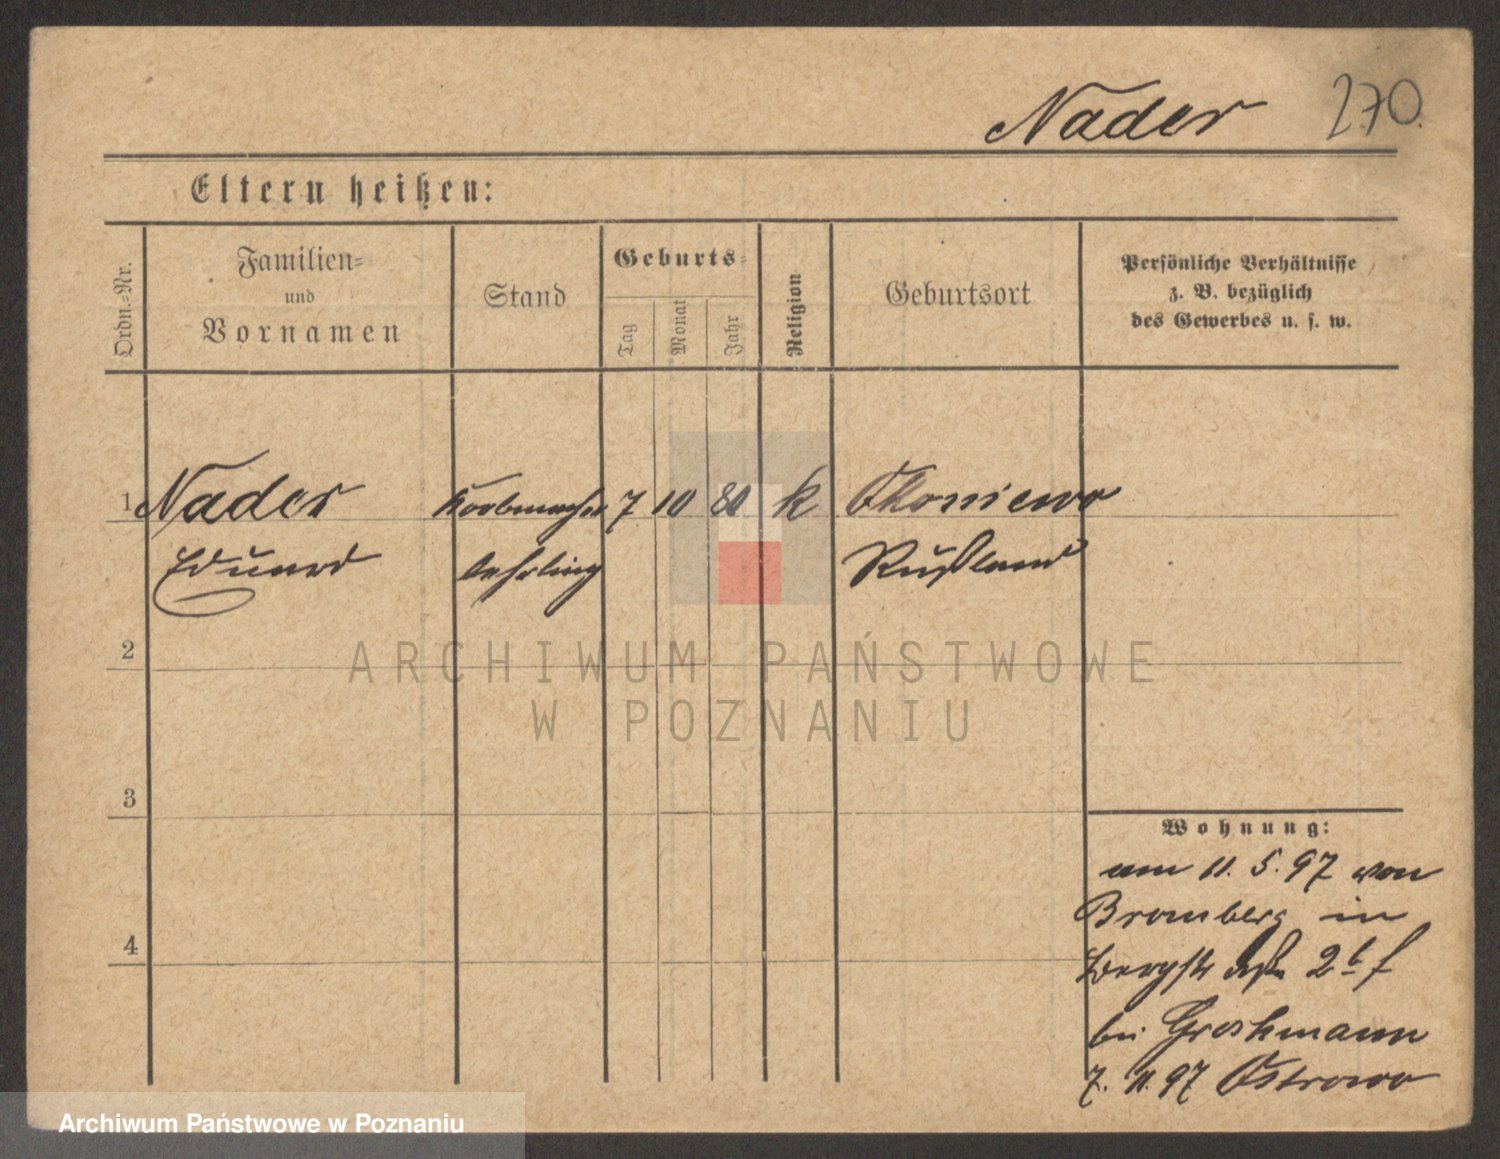 Nader 270.
Eltern heißen:
Ordn.-Nr.
Familien-
und
Vornamen
Stand
Geburts-
Tag
Monat
Jahr
Religion
Geburtsort
Persönliche Verhältnisse
z. B. bezüglich
des Gewerbes u. s. w.
1 Nader Korbmacher 7 10 80 k Okoniewo
Eduard lehrling Rußland
ARCHIWUM PAŃSTWOWE
W POZNANIU
2
3
4
Wohnung:
am 11. 5. 97 von
Bromberg in
Bergstr 2b
bei Groshmann
7. 11. 97 Ostrowo
Archiwum Państwowe w Poznaniu